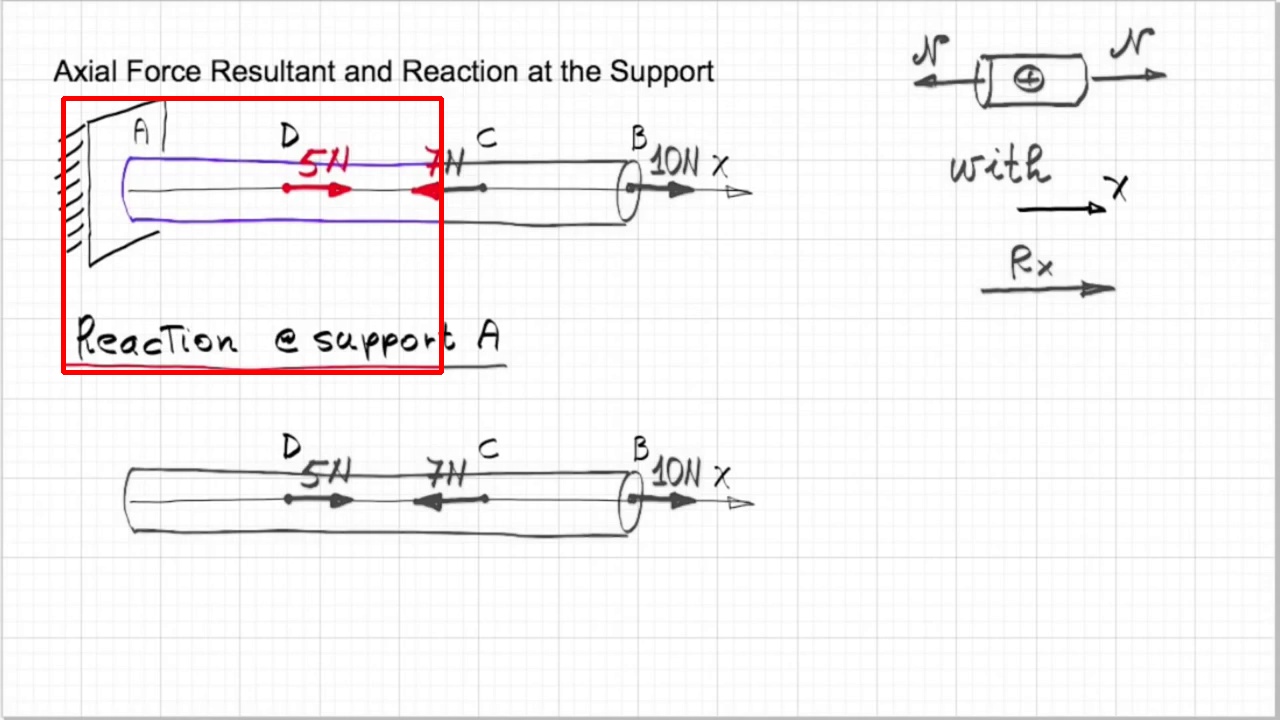 Axial Force Resultant and Reaction at the Support
N N
A D 5N 7N C B 10N X
with X
Rx
Reaction @ support A
D 5N 7N C B 10N X